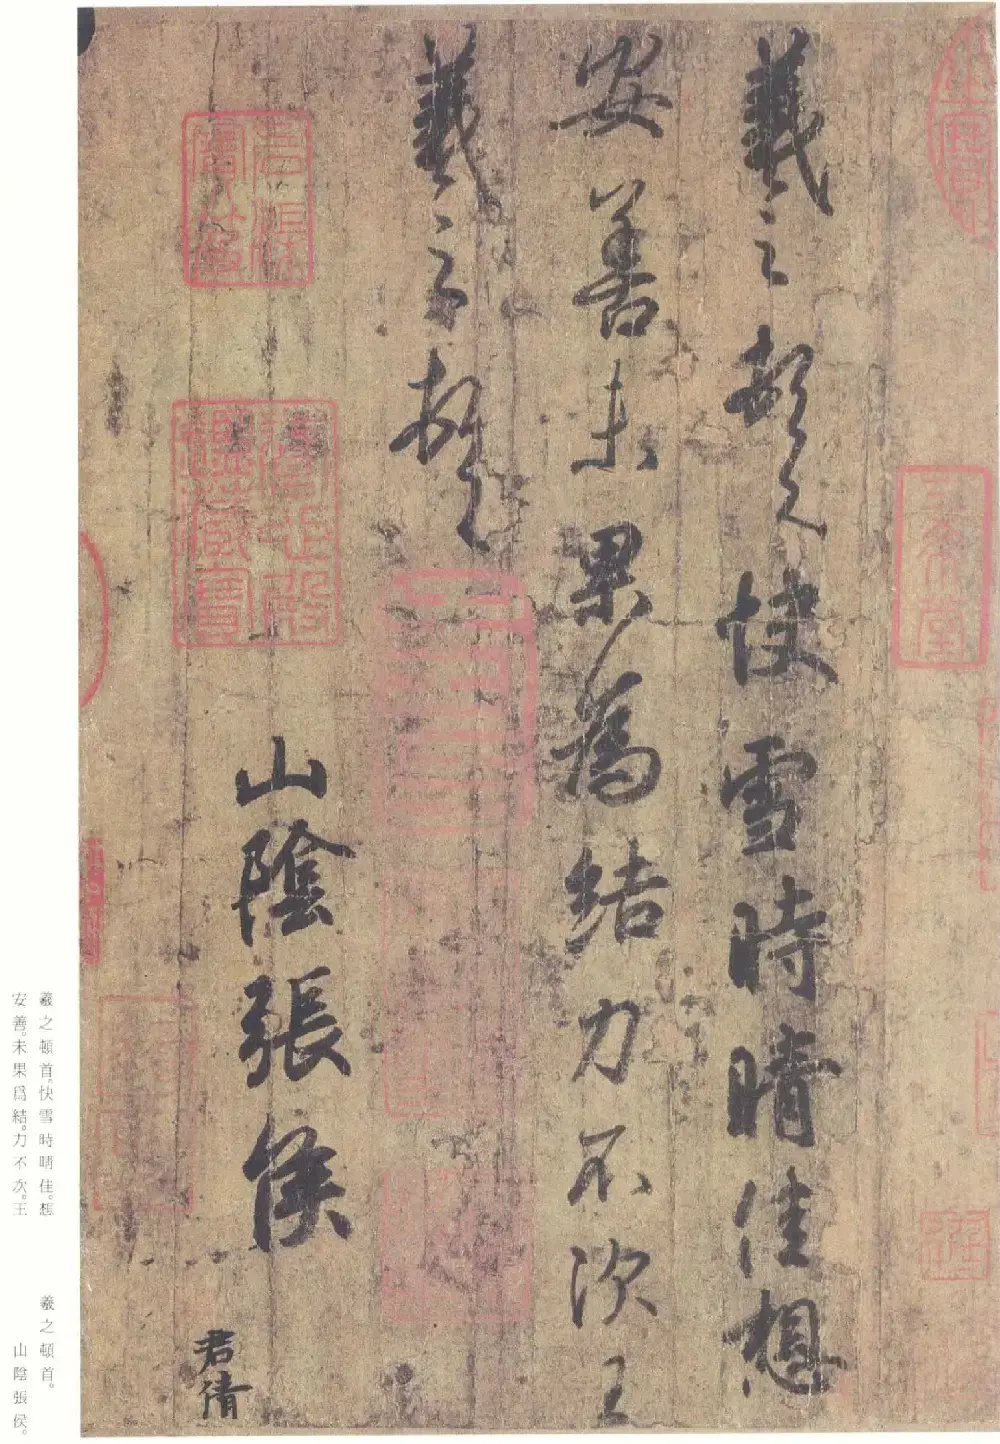 羲之頓首快雪時晴佳想
安善未果為結力不次王
羲之頓首
山陰張侯
君倩
三希堂
羲之頓首。快雪時晴佳。想
安善。未果爲結。力不次。王
羲之頓首。
山陰張侯。